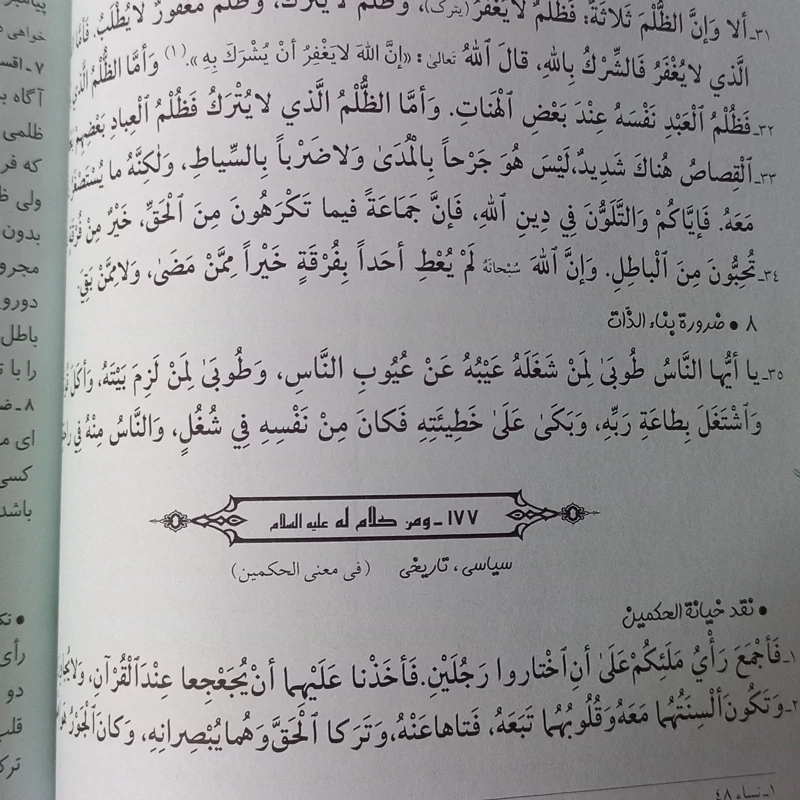 ٣١ـ ألا وَإِنَّ الظُّلْمَ ثَلاثَةٌ: فَظُلْمٌ لا يُغْفَرُ (يترك)، وَظُلْمٌ لا يُتْرَكُ، وَظُلْمٌ مَغْفُورٌ لا يُطْلَبُ. فَأَمَّا
الَّذي لا يُغْفَرُ فَالشِّرْكُ بِاللهِ، قالَ ٱللهُ تَعالىٰ: «إِنَّ اللهَ لا يَغْفِرُ أَنْ يُشْرَكَ بِهِ».(١) وَأَمَّا الظُّلْمُ الَّذي
٣٢ـ فَظُلْمُ ٱلْعَبْدِ نَفْسَهُ عِنْدَ بَعْضِ ٱلْهَناتِ. وَأَمَّا الظُّلْمُ الَّذي لا يُتْرَكُ فَظُلْمُ ٱلْعِبادِ بَعْضِهِمْ
٣٣ـ ٱلْقِصاصُ هُناكَ شَدِيدٌ، لَيْسَ هُوَ جَرْحاً بِالْمُدَىٰ وَلا ضَرْباً بِالسِّياطِ، وَلٰكِنَّهُ ما يُسْتَصْغَرُ
مَعَهُ. فَإِيَّاكُمْ وَالتَّلَوُّنَ فِي دِينِ ٱللهِ، فَإِنَّ جَمَاعَةً فيما تَكْرَهُونَ مِنَ ٱلْحَقِّ، خَيْرٌ مِنْ فُرْقَةٍ
٣٤ـ تُحِبُّونَ مِنَ ٱلْباطِلِ. وَإِنَّ ٱللهَ سُبْحانَهُ لَمْ يُعْطِ أَحَداً بِفُرْقَةٍ خَيْراً مِمَّنْ مَضَىٰ، وَلا مِمَّنْ بَقِيَ.
٨ • ضرورة بناء الذّات
٣٥ـ يا أَيُّها النَّاسُ طُوبَىٰ لِمَنْ شَغَلَهُ عَيْبُهُ عَنْ عُيُوبِ النَّاسِ، وَطُوبَىٰ لِمَنْ لَزِمَ بَيْتَهُ، وَأَكَلَ
وَٱشْتَغَلَ بِطاعَةِ رَبِّهِ، وَبَكَىٰ عَلَىٰ خَطِيئَتِهِ فَكانَ مِنْ نَفْسِهِ فِي شُغُلٍ، وَالنَّاسُ مِنْهُ فِي
١٧٧ـ ومن كلام له عليه السلام
سياسى، تاريخى (فى معنى الحكمين)
• نقد خيانة الحكمين
١ـ فَأَجْمَعَ رَأْيُ مَلَئِكُمْ عَلىٰ أَنِ ٱخْتاروا رَجُلَيْنِ. فَأَخَذْنا عَلَيْهِما أَنْ يُجَعْجِعا عِنْدَ ٱلْقُرْآنِ،
٢ـ وَتَكُونَ أَلْسِنَتُهُما مَعَهُ وَقُلُوبُهُما تَبَعَهُ، فَتاها عَنْهُ، وَتَرَكا ٱلْحَقَّ وَهُما يُبْصِرانِهِ، وَكانَ ٱلْجَوْرُ
١ـ نساء ٤٨
خواهى
٧ـ
آگاه
ظلمى
كه
ولى
بدون
دورو
باطل
را با
٨ـ
اى
كسى
باشد
•
رأى
دو